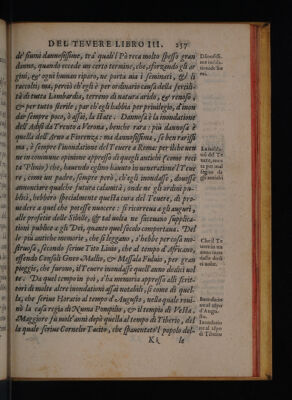 DEL TEVERE LIBRO III. 257
de' fiumi dannosissime, trà quali'l Pò reca molto spesso gran
danno, quando eccede un certo termine, che, sforzando gli ar
gini, & ogni human riparo, ne porta via i seminati, & li
raccolti; ma, perciò ch'egli è per ordinario causa della fertili
tà di tutta Lombardia, terreno di natura arido, & renoso,
& per tutto sterile; par ch'egli habbia per privilegio, d'inon
dar sempre poco, ò assai, la state. Dannosa è la inondatione
dell'Adisi da Trento a Verona, benche rara: più dannosa è
quella dell'Arno a Fiorenza: ma dannosissima, se ben rarissi
ma, è sempre l'inondatione del Tevere a Roma: per il che ven
ne in commune opinione appresso di quegli antichi (come reci
ta Plinio) che, havendo eglino havuto in veneratione'l Teve
re, come un padre, sempre però, ch'egli inondasse, dovesse
annonciare qualche futura calamità, onde ne gli ordini pu-
blici, hebbero specialmente quella cura del Tevere, di pro-
vedere a quel che potesse nuocere: si ricorreva a gli auguri,
alle profetie delle Sibille, & tal volta ne facevano supplica-
tioni publice a gli Dei, quanto quel secolo comportava. Del
le più antiche memorie, che si leggano, s'hebbe per cosa mo-
struosa, secondo scrive Tito Livio, che al tempo d'Africano,
essendo Consoli Gneo Mallio, & Messala Fulvio, per gran
pioggie, che furono, il Tevere inondasse quell'anno dodici vol
te. Da quel tempo in poi, s'ha memoria appresso alli scrit-
tori di molte altre inondationi assai notabili, sì come di quel-
la, che scrive Horatio al tempo d'Augusto, nella quale rovi-
nò la casa regia di Numa Pompilio, & il tempio di Vesta.
Maggiore fù molt'anni dopò quella al tempo di Tiberio, del
la quale scrive Cornelio Tacito, che spaventato'l popolo del-
Kk le
Inondatio
ne al tēpo
di Tiberio